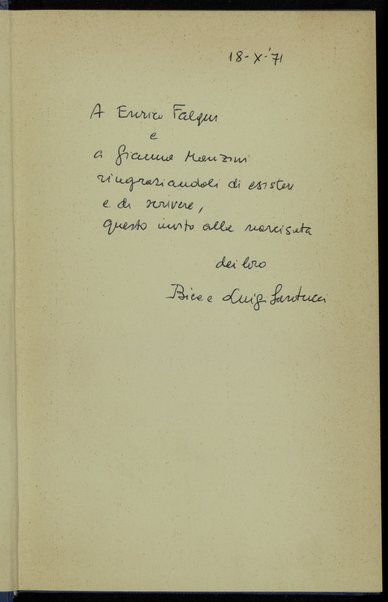 18-X-'71
A Enrico Falqui
e
a Gianna Manzini
ringraziandoli di esistere
e di scrivere,
questo invito alla narcisata
dei loro
Bice e Luigi Santucci